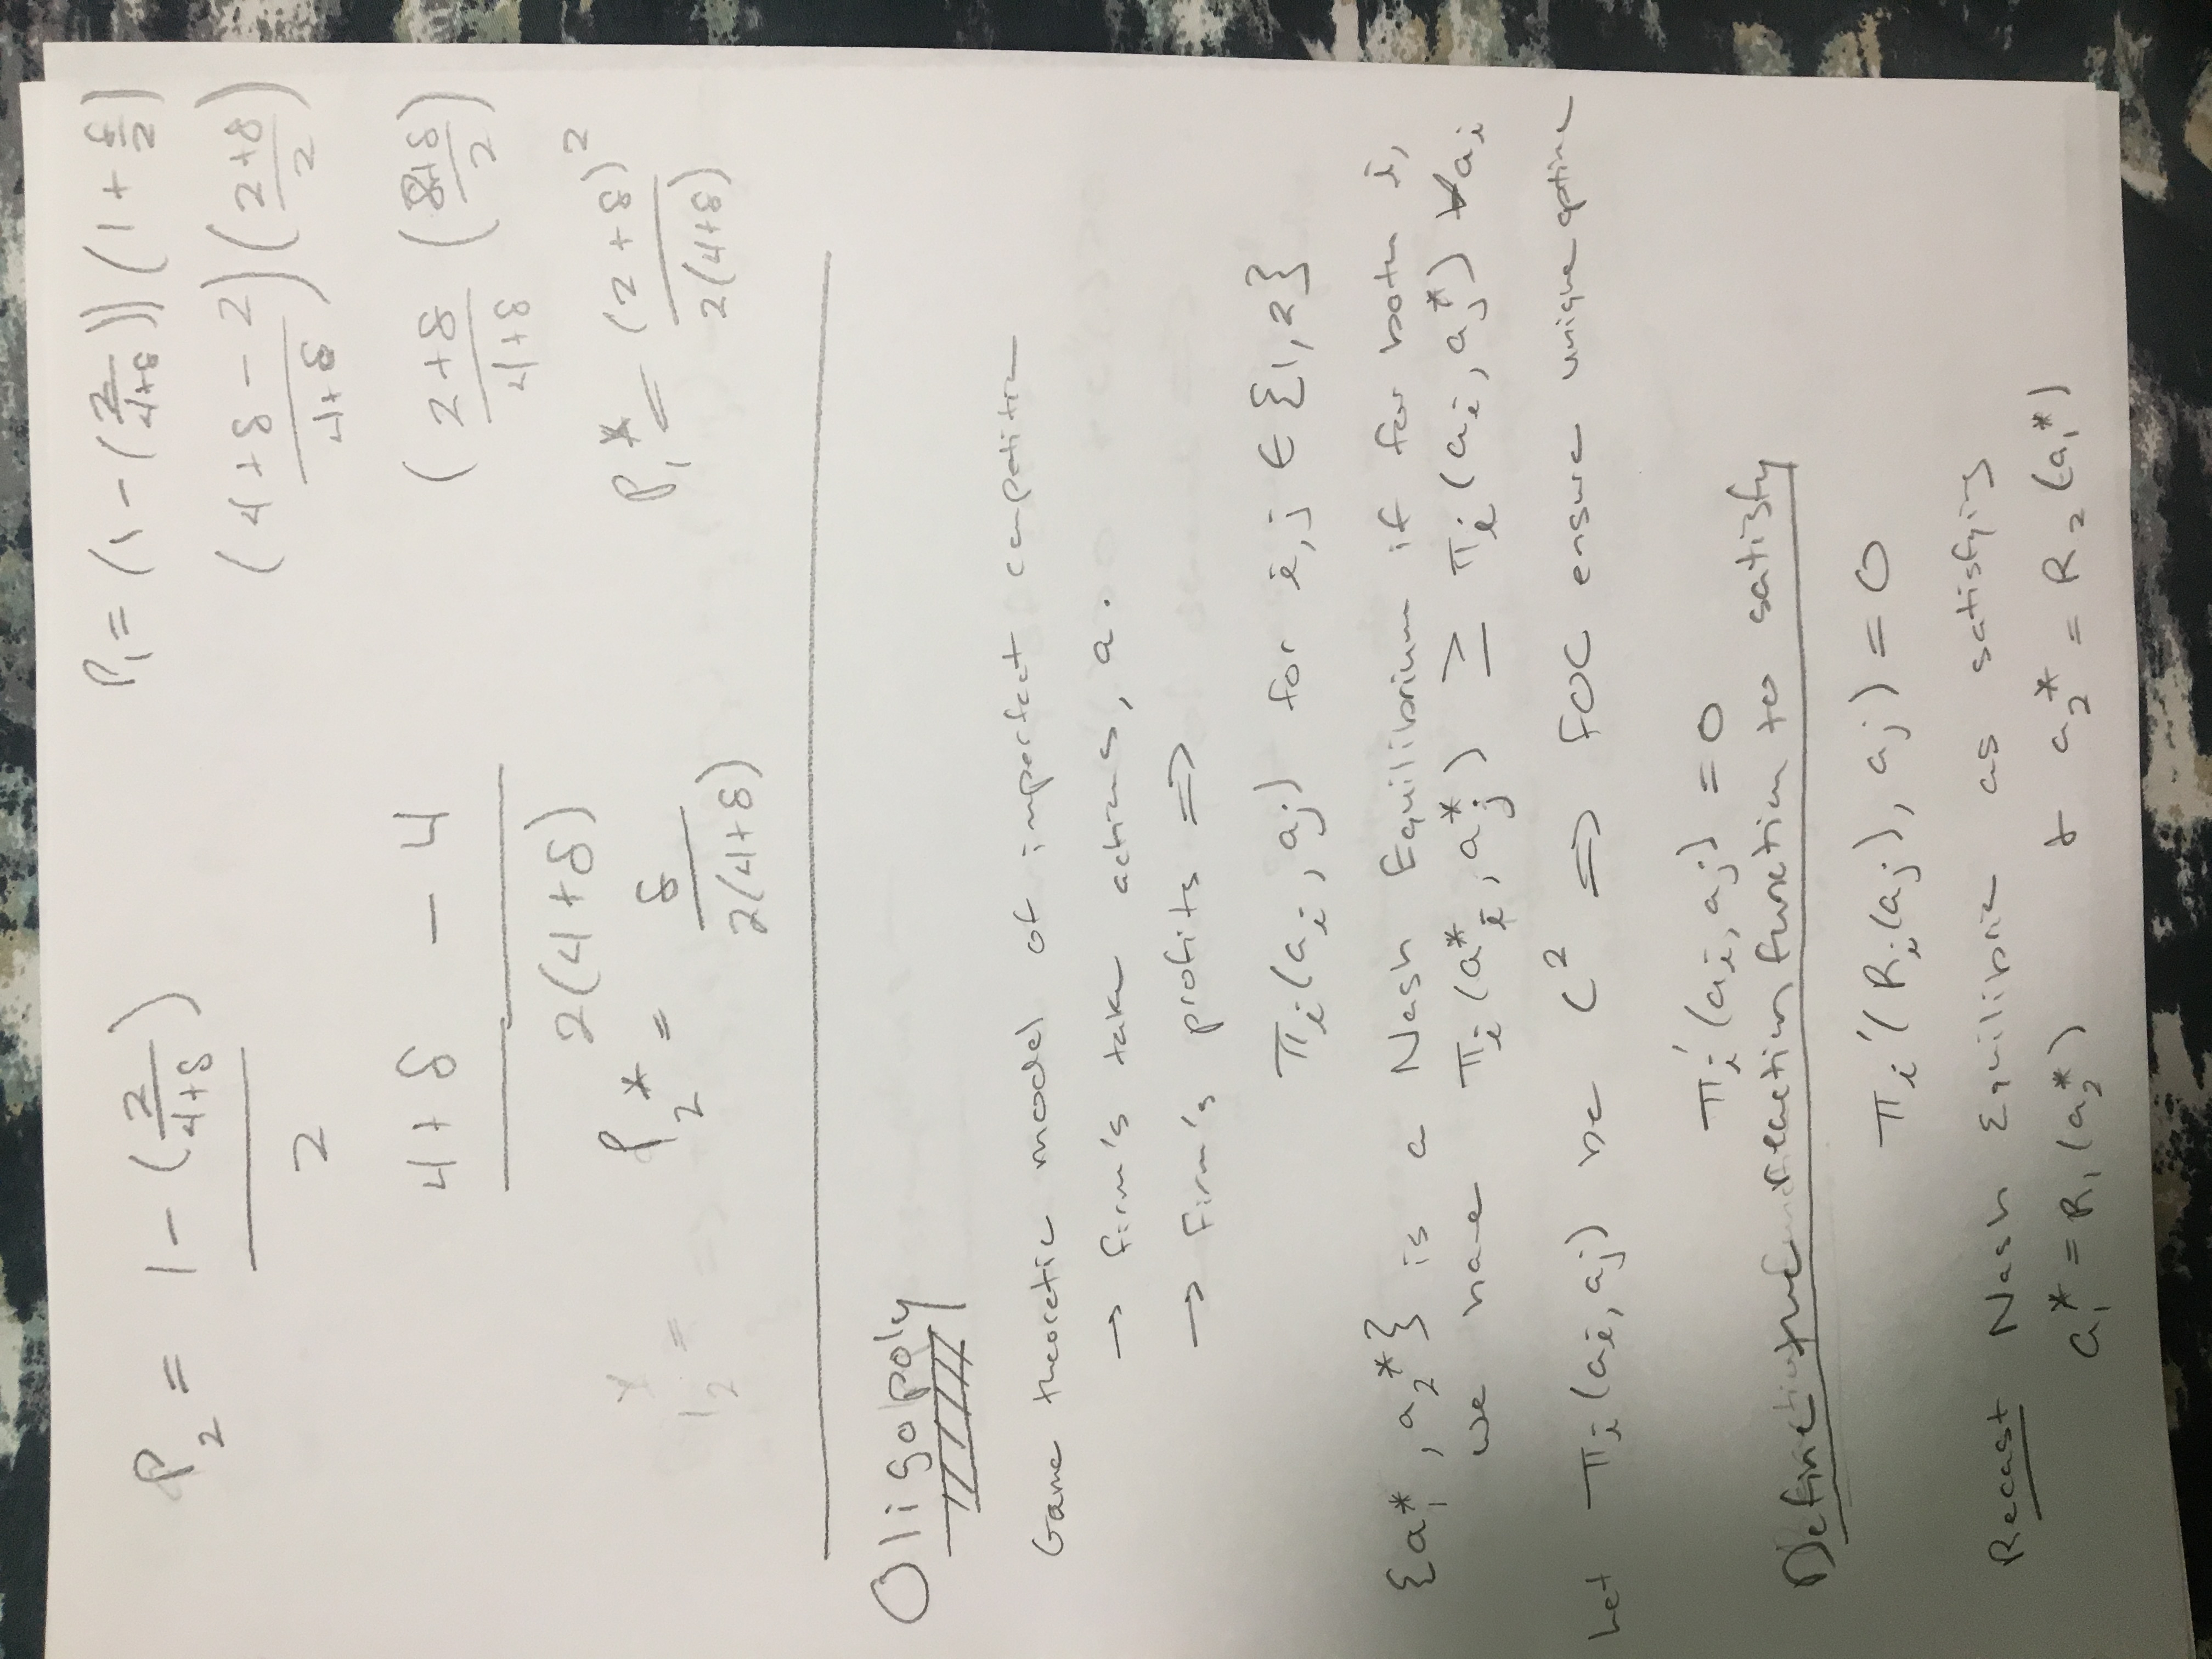 P₂ = (1 - (2/(4+δ)))/2
(4+δ - 4)/(2(4+δ))
P₂* = δ/(2(4+δ))
P₁ = (1 - (2/(4+δ))) (1 + δ/2)
((4+δ - 2)/(4+δ)) ((2+δ)/2)
((2+δ)/(4+δ) ((2+δ)/2)
P₁* = (2+δ)²/(2(4+δ))
Oligopoly
Game theoretic model of imperfect competition
→ firm's take actions, a.
→ firm's profits ⇒
πᵢ(aᵢ, aⱼ) for i,j ∈ {1,2}
{a₁*, a₂*} is a Nash Equilibrium if for both i,
we have πᵢ(aᵢ*, aⱼ*) ≥ πᵢ(aᵢ, aⱼ*) ∀aᵢ
Let πᵢ(aᵢ, aⱼ) be C² ⇒ FOC ensure unique optima
πᵢ'(aᵢ, aⱼ) = 0
Define the reaction function to satisfy
πᵢ'(Rᵢ(aⱼ), aⱼ) = 0
Recast Nash Equilibria as satisfying
a₁* = R₁(a₂*) & a₂* = R₂(a₁*)